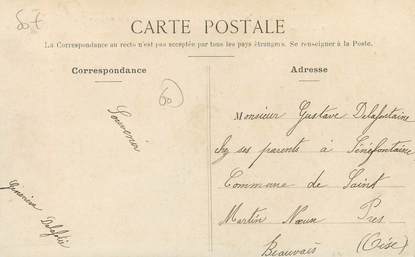 CARTE POSTALE
La Correspondance au recto n'est pas acceptée par tous les pays étrangers. Se renseigner à la Poste.
Correspondance
Adresse
60
Souvenir
Monsieur Gustave Delafontaine
ses parents à Sénéfontaine
Commune de Saint
Martin Nœun Pres
Beauvais (Oise)